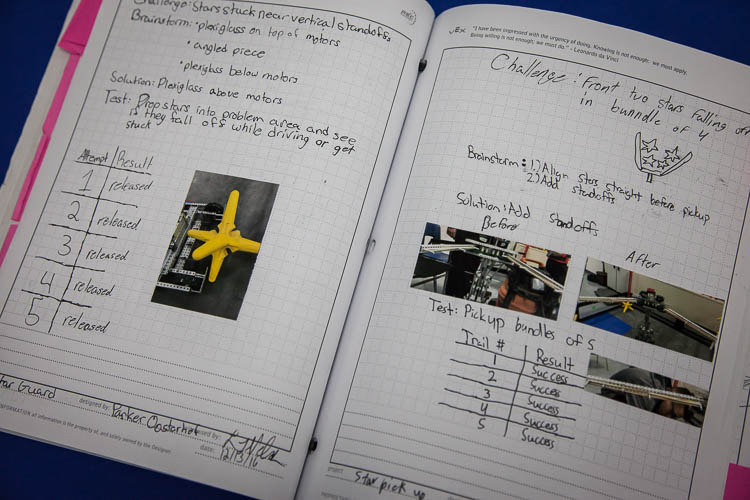 Challenge: Stars stuck near vertical standoffs
Brainstorm: • plexiglass on top of motors
• angled piece
• plexiglass below motors
Solution: Plexiglass above motors
Test: Drop stars into problem area and see
is they fall off while driving or get
stuck
Attempt Result
1 released
2 released
3 released
4 released
5 released
Star Guard
designed by: Parker
date: 12/13/16
VEX
"I have been impressed with the urgency of doing. Knowing is not enough; we must apply.
Being willing is not enough; we must do." - Leonardo da Vinci
Challenge: Front two stars falling off
in bunndle of 4
Brainstorm: 1.) Align stars straight before pickup
2.) Add standoffs
Solution: Add standoffs
Before
After
Test: Pickup bundles of 5
Trail # Result
1 Success
2 Success
3 Success
4 Success
5 Success
project Star pick up